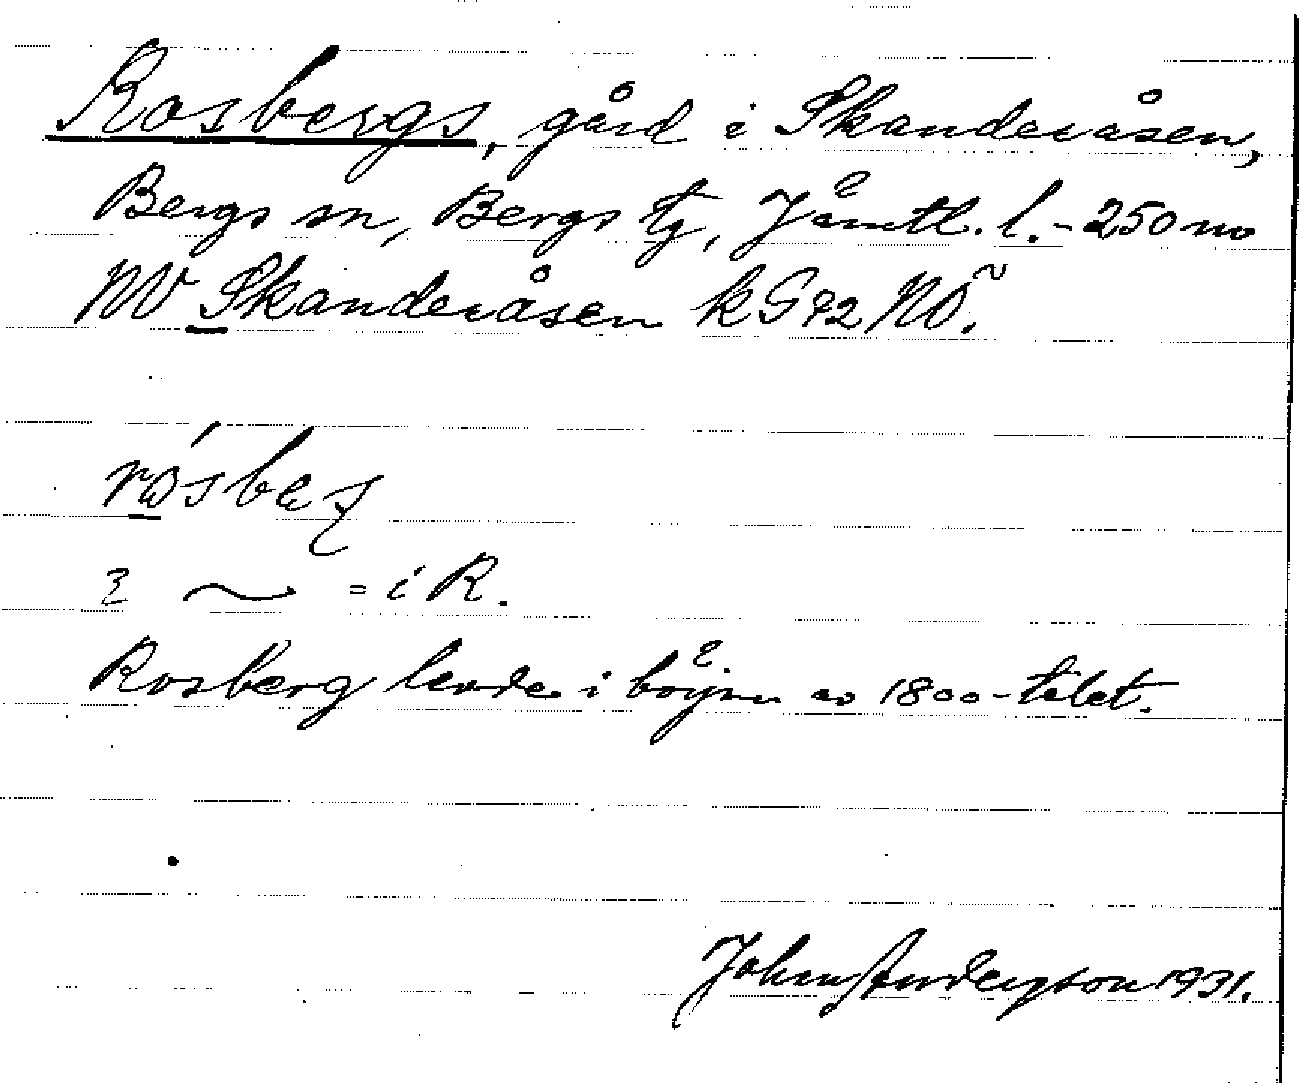 Rosbergs, gård i Skanderåsen,
Bergs sn, Bergs tg, Jämtl. l. - 250 m
NV Skanderåsen k G 92 NÖ.
rósbeʂ
i ~ = i R.
Rosberg levde i börjn av 1800-talet.
John Anderson 1931.